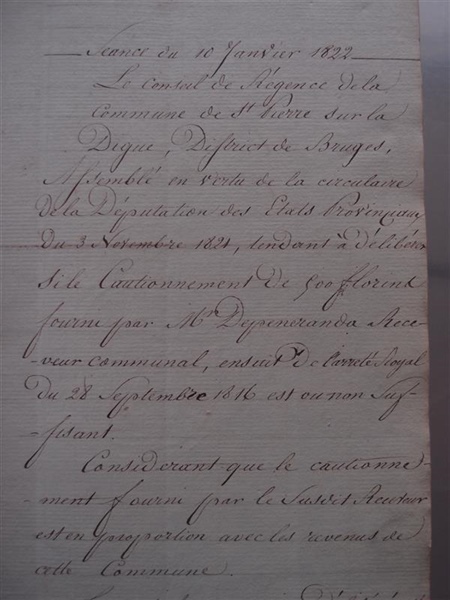 Séance du 10 Janvier 1822
Le conseil de Régence de la
Commune de St Pierre sur la
Digue, District de Bruges,
Assemblé en vertu de la circulaire
de la Députation des Etats Provinciaux
du 3 Novembre 1821, tendant à délibérer
si le Cautionnement de 500 florins
fourni par Mr Depeneranda Rece-
-veur communal, ensuite de l'arreté Royal
du 28 Septembre 1816 est ou non Suf-
-fisant.
Considerant que le cautionne-
-ment fourni par le Susdit Receveur
est en proportion avec les revenus de
cette Commune.